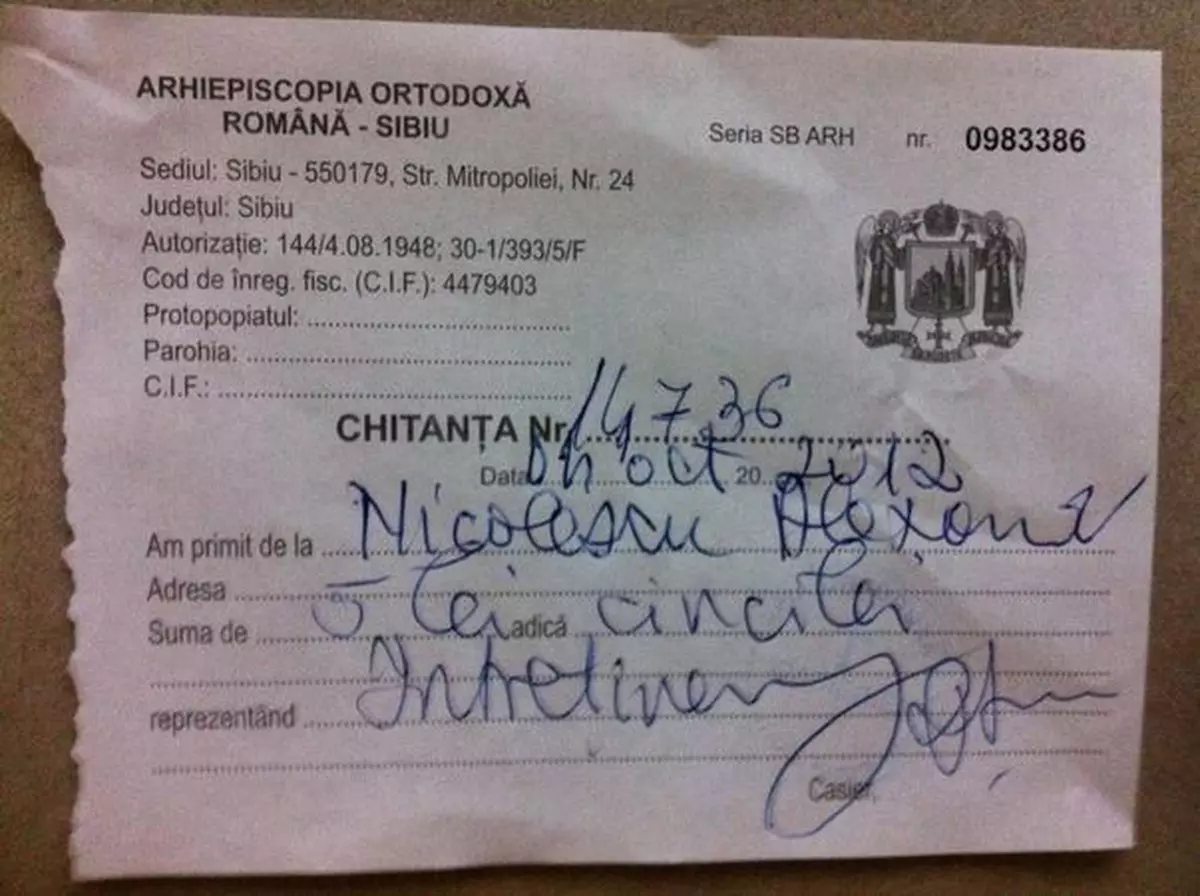 ARHIEPISCOPIA ORTODOXĂ
ROMÂNĂ - SIBIU
Seria SB ARH nr. 0983386
Sediul: Sibiu - 550179, Str. Mitropoliei, Nr. 24
Județul: Sibiu
Autorizație: 144/4.08.1948; 30-1/393/5/F
Cod de înreg. fisc. (C.I.F.): 4479403
Protopopiatul: ........................................
Parohia: ..................................................
C.I.F.: ......................................................
CHITANȚA Nr. 14736
Data oct 20 2012
Am primit de la Nicolescu
Adresa
Suma de 5 lei adică cinci lei
reprezentând
Casier,